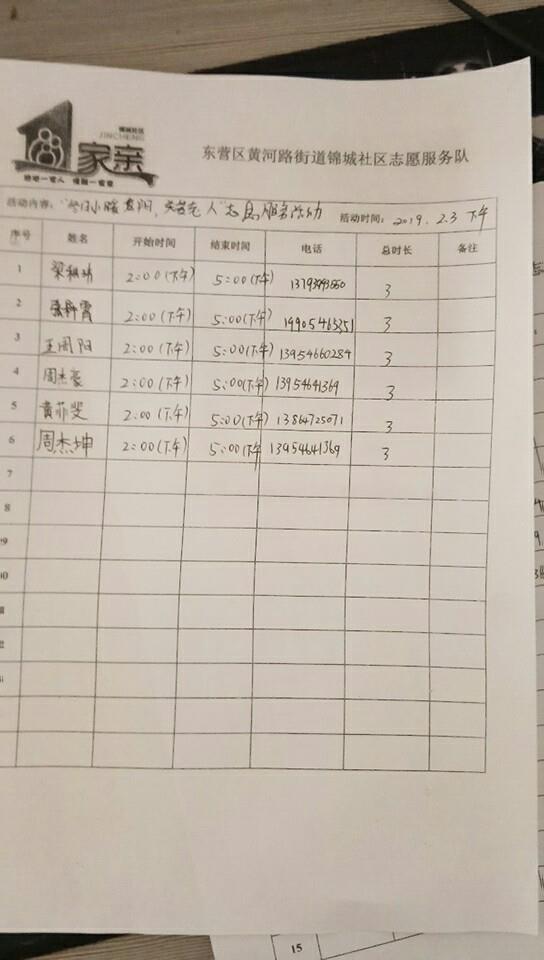 锦城社区
JINCHENG
家亲
东营区黄河路街道锦城社区志愿服务队
活动内容: 老人"志愿服务活动 活动时间: 2019.2.3 下午
序号 姓名 开始时间 结束时间 电话 总时长 备注
1 2:00(下午) 5:00(下午) 3
2 2:00(下午) 5:00(下午) 19905463351 3
3 王周阳 2:00(下午) 5:00(下午) 13954660284 3
4 周杰豪 2:00(下午) 5:00(下午) 13954641369 3
5 黄菲斐 2:00(下午) 5:00(下午) 13864725071 3
6 周杰坤 2:00(下午) 5:00(下午 13954641369 3
7
8
9
10
15